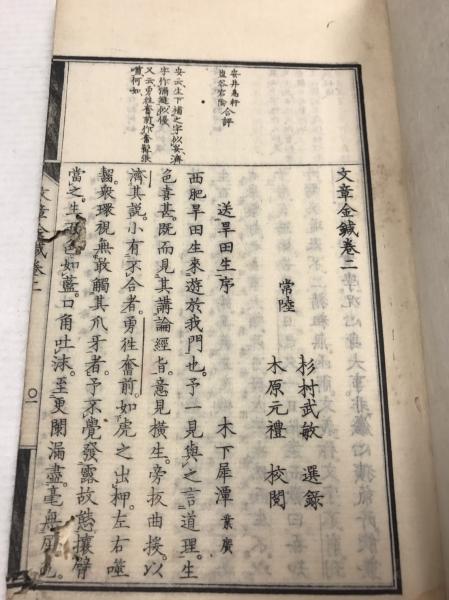 文章金鍼卷二
常陸
杉村武敏 選錄
木原元禮 校閱
安井息軒
鹽谷宕陰合評
送早田生序
木下犀潭 業廣
西肥早田生來遊於我門也。予一見與之言道理。生
色喜甚。既而見其講論經旨。意見橫生。旁拔曲援。以
濟其說。小有不合者。勇往奮前。如虎之出柙。左右噬
齧。衆環視。無敢觸其爪牙者。予不覺發露故態。攘臂
當之。生 色如藍。口角吐沫。至更闌漏盡。毫無
安云。生下補之字似妥。濟
字作彌縫似優
又云勇往奮前作奮髯張
嘴何如
文章金鍼卷二
〇一